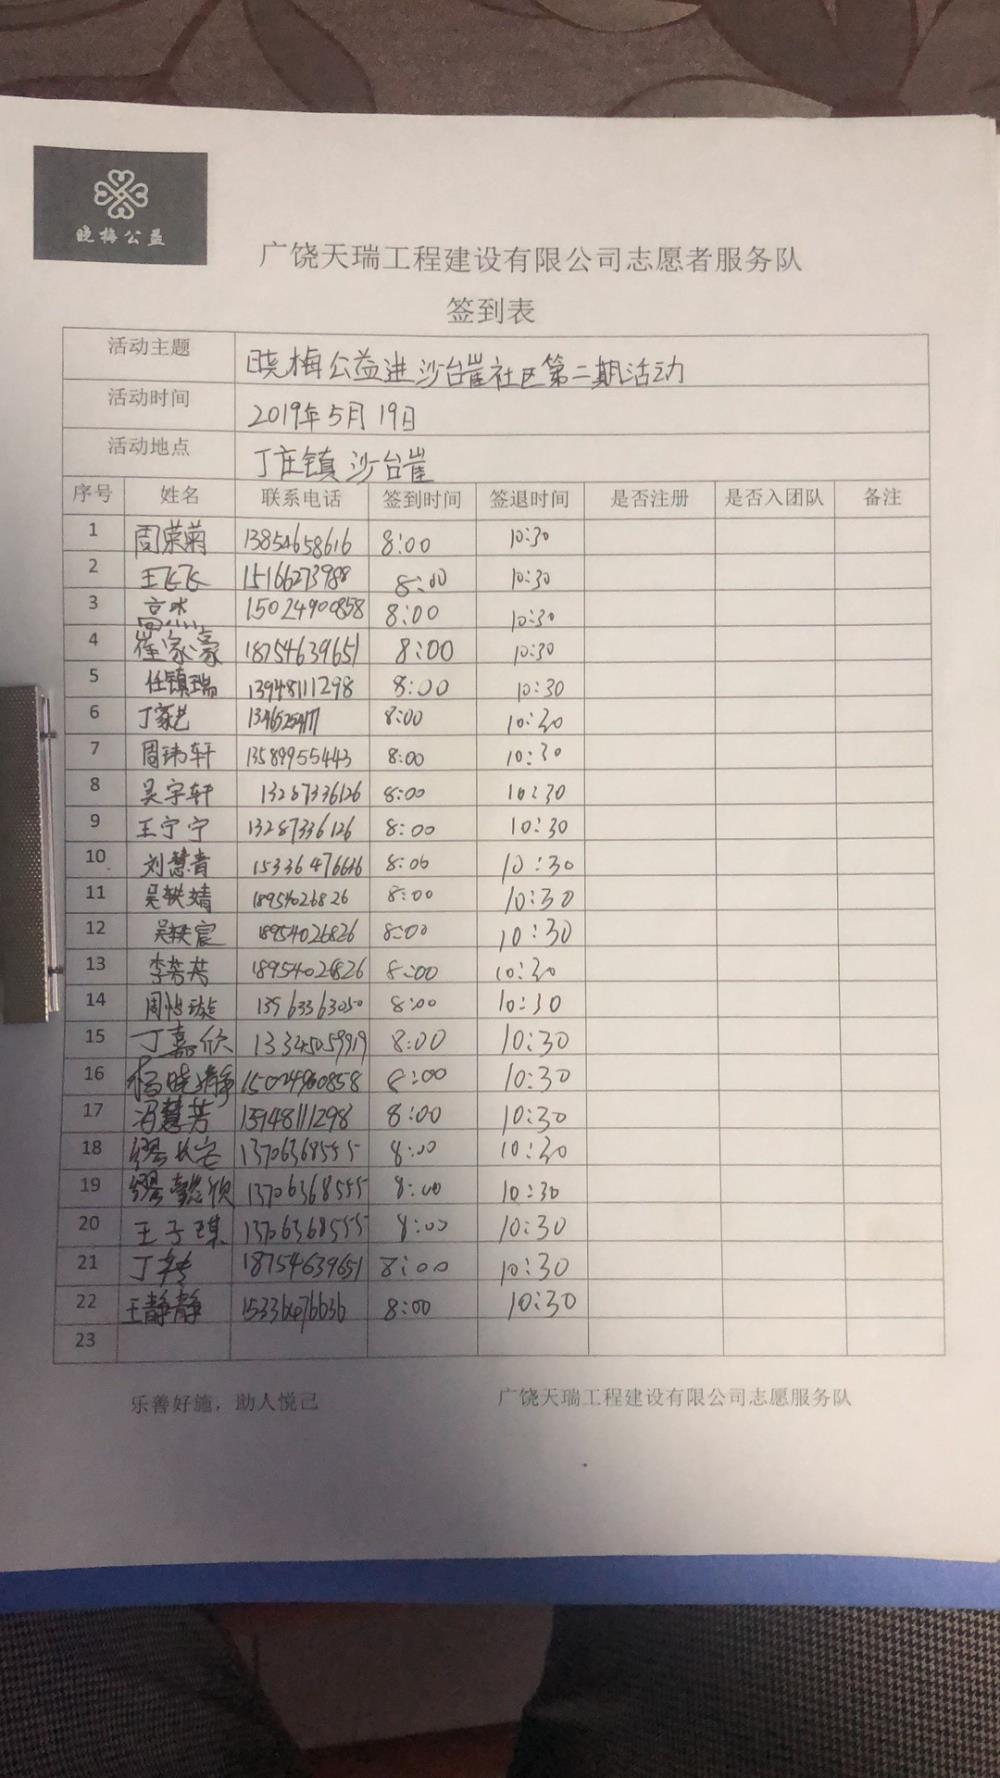 晓梅公益
广饶天瑞工程建设有限公司志愿者服务队
签到表
活动主题 晓梅公益进沙台崔社区第二期活动
活动时间 2019年5月19日
活动地点 丁庄镇沙台崔
序号 姓名 联系电话 签到时间 签退时间 是否注册 是否入团队 备注
1 周荣菊 13854658616 8:00 10:30
2 王飞飞 15166273988 8:00 10:30
3 15024900858 8:00 10:30
4 崔家豪 18754639651 8:00 10:30
5 任镇瑞 13948111298 8:00 10:30
6 丁家艺 8:00 10:30
7 周玮轩 13589955443 8:00 10:30
8 吴宇轩 13287336126 8:00 10:30
9 王宁宁 13287336126 8:00 10:30
10 刘慧青 15336476636 8:00 10:30
11 吴轶婧 18954026826 8:00 10:30
12 吴轶宸 18954026826 8:00 10:30
13 李芳芳 18954026826 8:00 10:30
14 13563363050 8:00 10:30
15 丁嘉欣 13345059919 8:00 10:30
16 杨晓静 15024900858 8:00 10:30
17 冯慧芳 13948111298 8:00 10:30
18 缪长宏 13706368555 8:00 10:30
19 缪懿颀 13706368555 8:00 10:30
20 王子琪 13706368555 8:00 10:30
21 丁 18754639651 8:00 10:30
22 王静静 15336476636 8:00 10:30
23
乐善好施，助人悦己 广饶天瑞工程建设有限公司志愿服务队